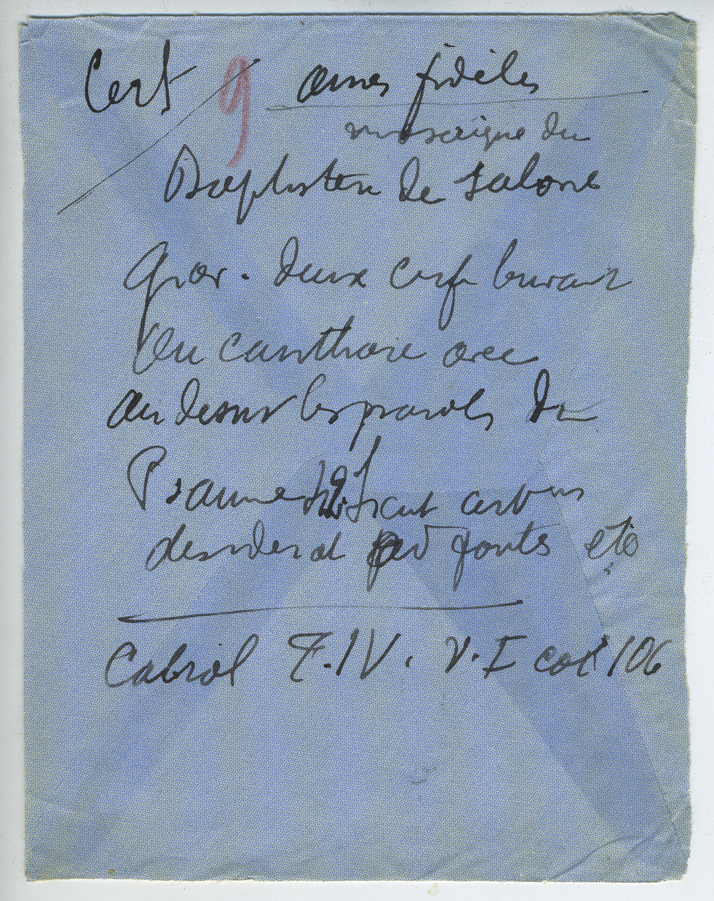 Cerf 9 ames fidèles
mosaique du
Baptistere de Salone
deux cerfs buvant
un canthare avec
au dessus les paroles du
Psaume Sicut cervus
desiderat ad fontes etc
Cabrol T.IV. V.I col 106